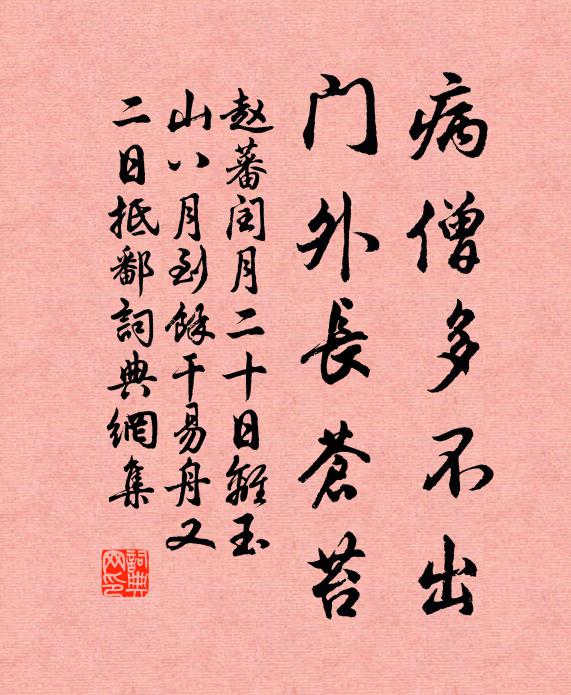 病僧多不出
門外長蒼苔
赵蕃闰月二十日離玉
山八月到餘干易舟又
二日抵鄱詞典網集
詞典网印